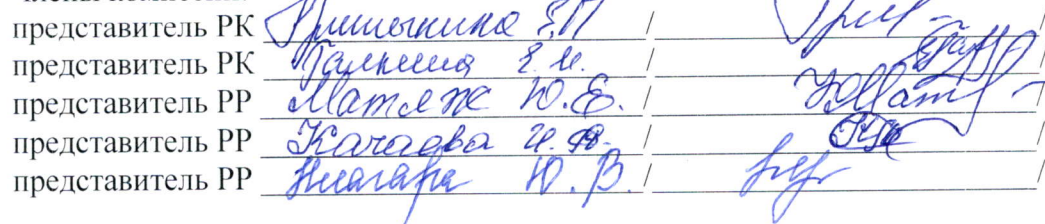 представитель РК Гришынина Е.П / /
представитель РК Галкина Е.И. / /
представитель РР Матяж Ю.Е. / /
представитель РР Качаева И.В. / /
представитель РР Ниагара Ю.В. / /